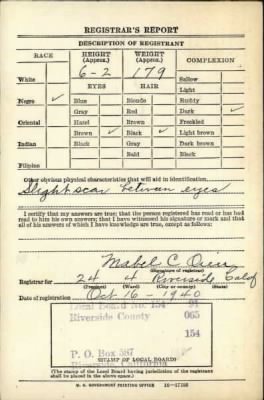 REGISTRAR'S REPORT
DESCRIPTION OF REGISTRANT
RACE
HEIGHT
(Approx.)
WEIGHT
(Approx.)
COMPLEXION
6-2
179
White
Sallow
EYES
HAIR
Light
Negro ✓
Blue
Blonde
Ruddy
Gray
Red
Dark ✓
Oriental
Hazel
Brown
Freckled
Brown ✓
Black ✓
Light brown
Indian
Black
Gray
Dark brown
Bald
Black
Filipino
Other obvious physical characteristics that will aid in identification
Slight scar between eyes
I certify that my answers are true; that the person registered has read or has had read to him his own answers; that I have witnessed his signature or mark and that all of his answers of which I have knowledge are true, except as follows:
Mabel C.
(Signature of registrar)
Registrar for 24 4 Riverside Calif
(Precinct) (Ward) (City or county) (State)
Date of registration Oct 16 - 1940
Local Board No. 154
Riverside County
065
154
P. O. Box 587
Riverside California
(STAMP OF LOCAL BOARD)
(The stamp of the Local Board having jurisdiction of the registrant shall be placed in the above space.)
U. S. GOVERNMENT PRINTING OFFICE